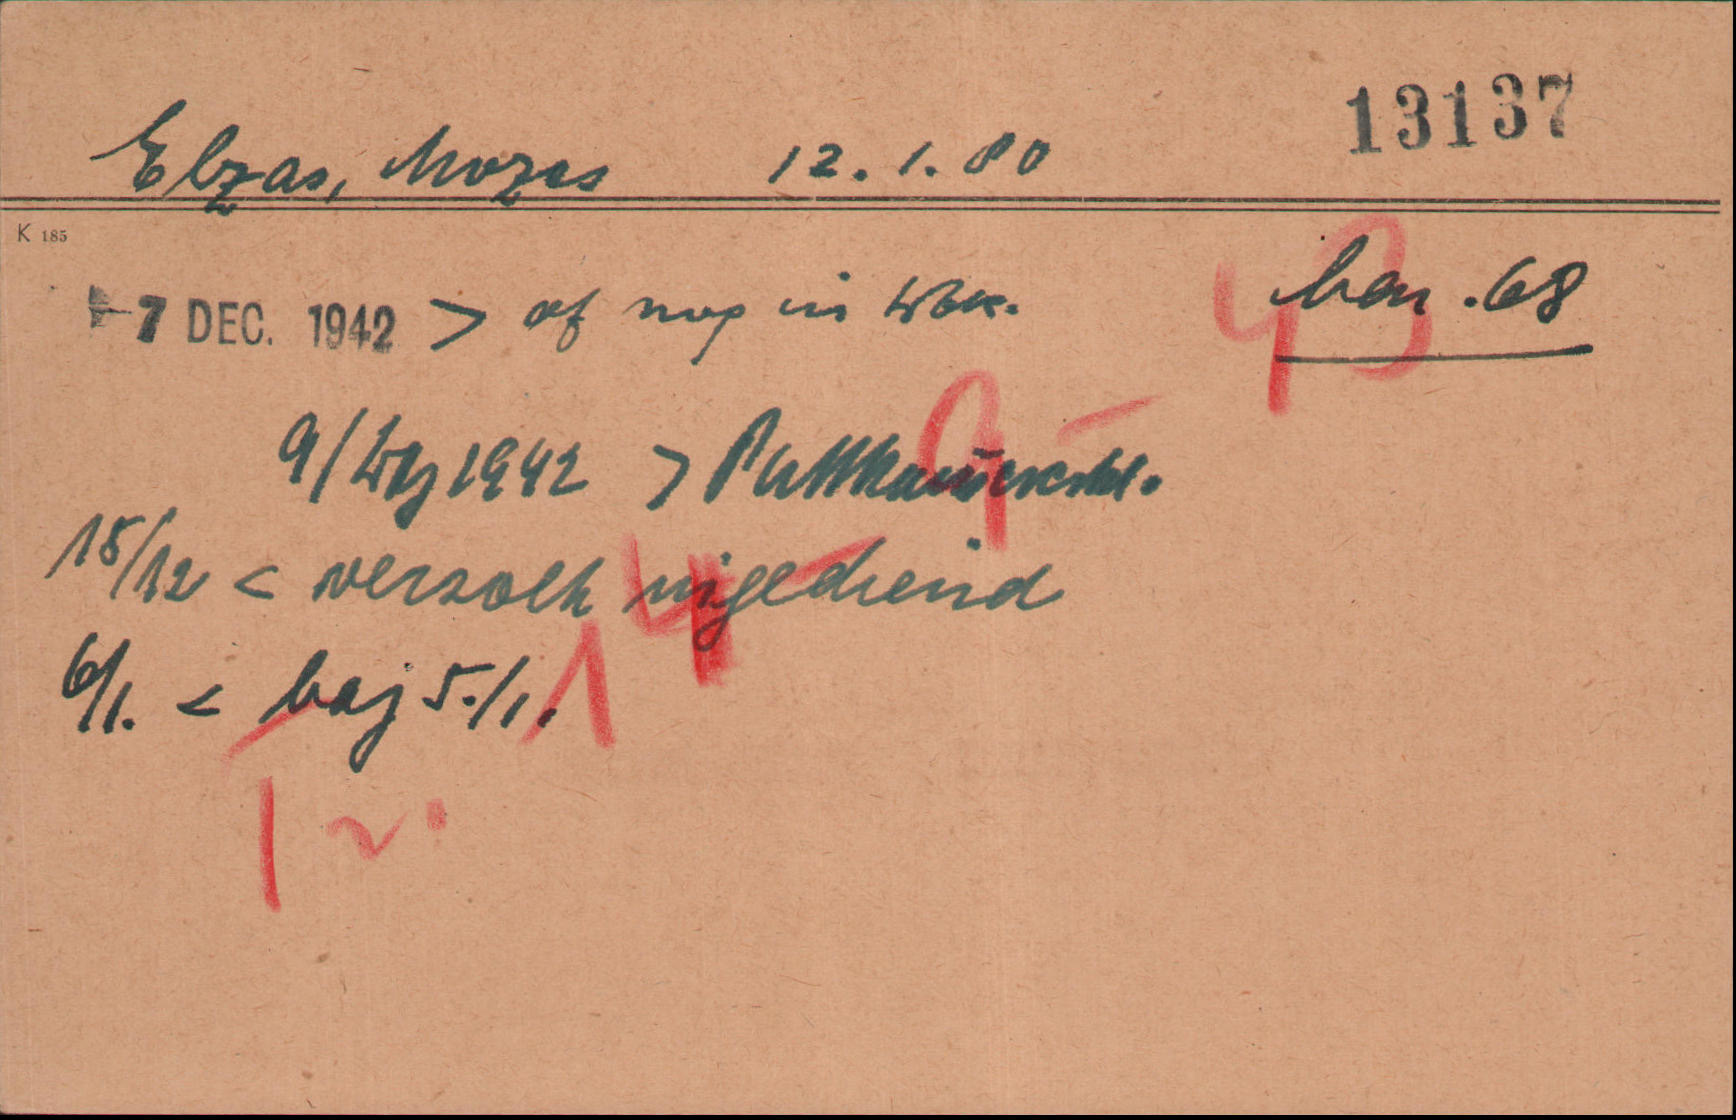 13137
Elzas, Mozes 12.1.80
K 185
7 DEC. 1942 > of nog in Wbk.
bar. 68
43
9/ 1942 > Putt
9 -
15/12 < verzoek ingediend
14 -
6/1. < baj 5./1.
1
1